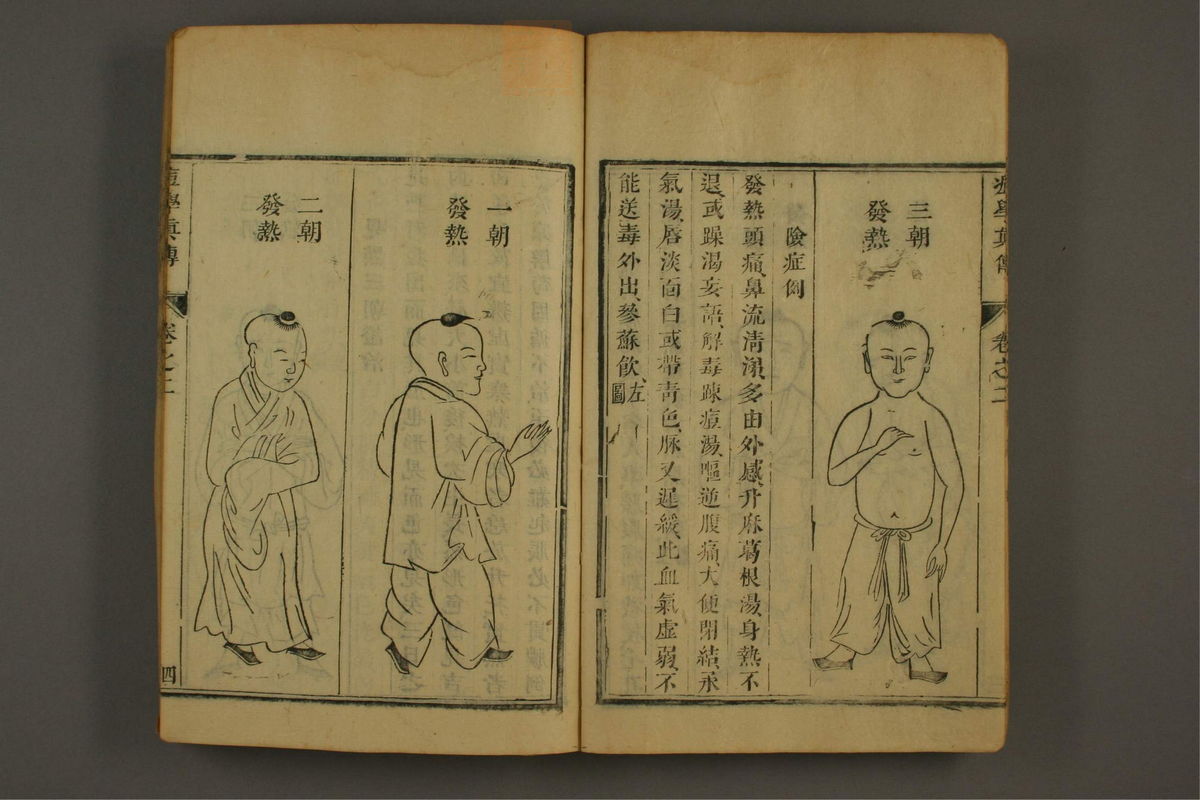 痘學真傳 卷之二
三朝
發熱
險症
發熱頭痛、鼻流清涕、多由外感、升麻葛根湯、身熱不
退、或躁渴妄語、解毒疎痘湯、嘔逆腹痛、大便閉結、承
氣湯、唇淡面白、或帶青色、脉又遲緩、此血氣虛弱、不
能送毒外出、參蘇飲、左圖
一朝
發熱
二朝
發熱
痘學真傳 卷之二 四